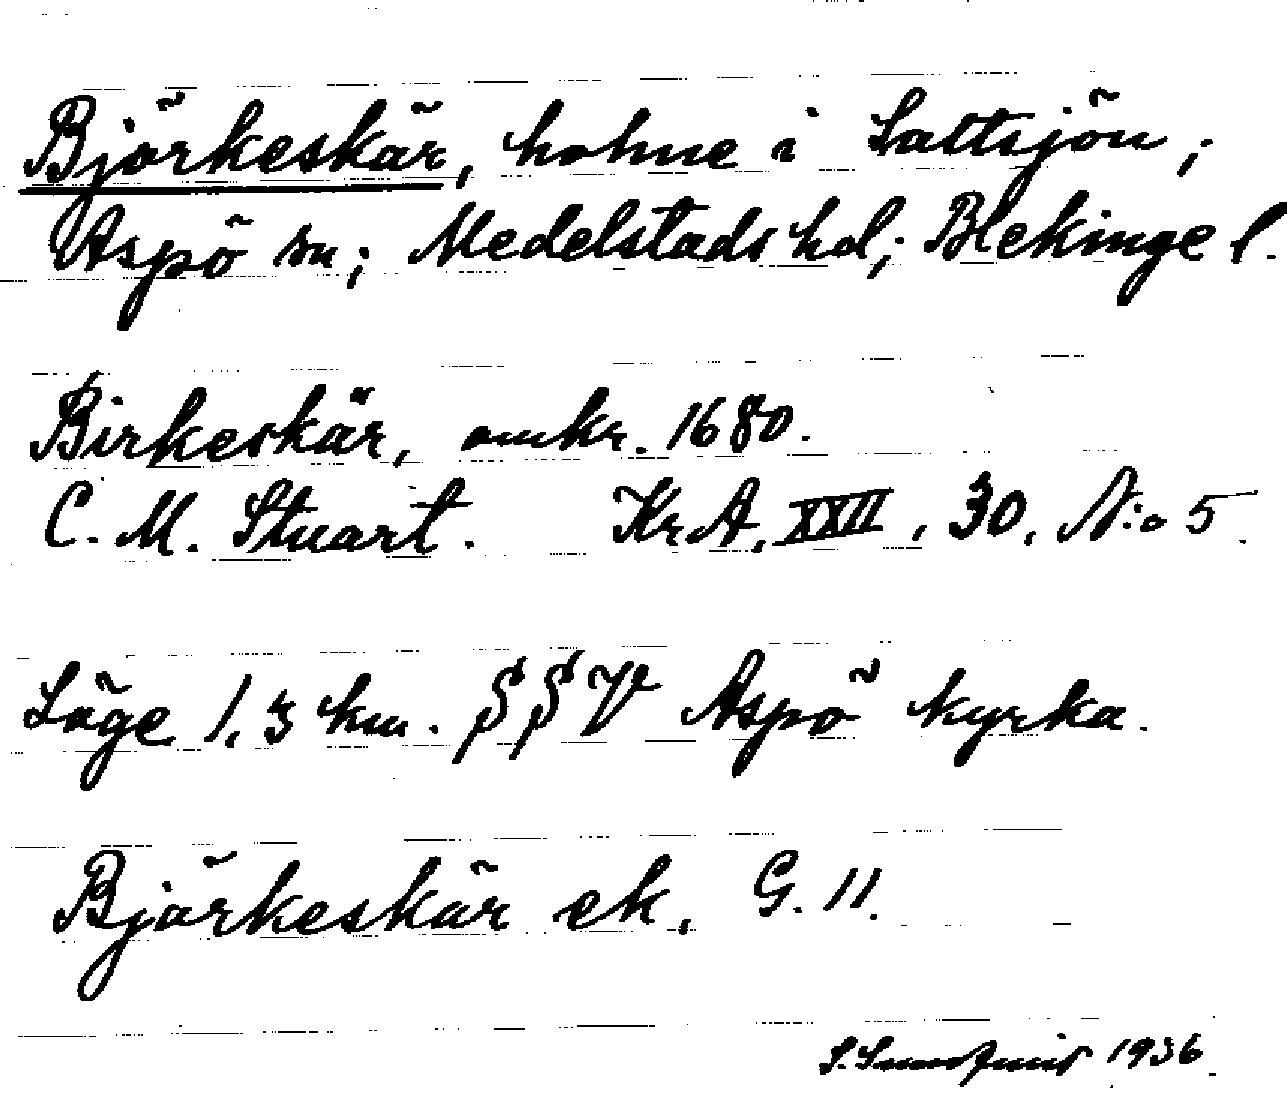 Björkeskär, holme i Saltsjön;
Aspö sn; Medelstads hd; Blekinge l.
Birkeskär, omkr. 1680.
C. M. Stuart. Kr. A. XXII, 30, N:o 5.
Läge 1,3 km. SSV Aspö kyrka.
Björkeskär ek. G. 11.
1936